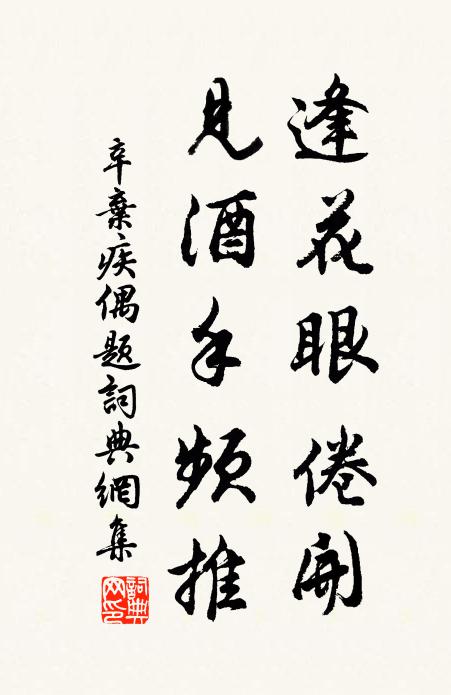 逢花眼倦開
見酒手頻推
辛棄疾偶題詞典網集
詞典網印